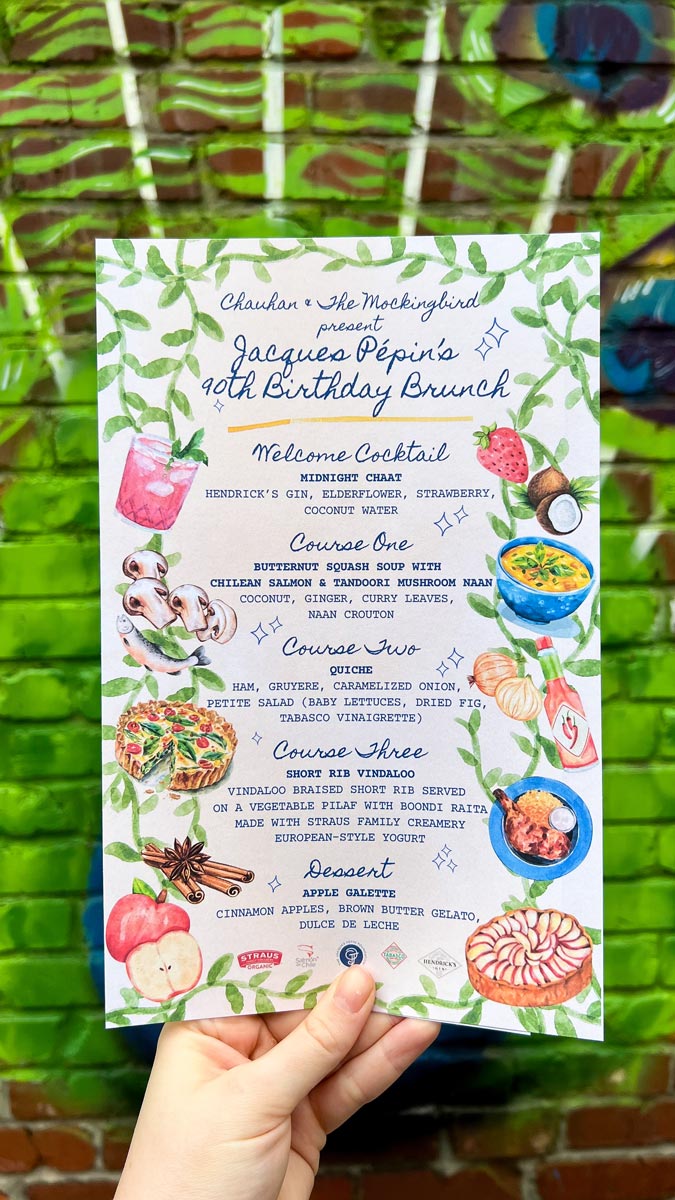 Chauhan & The Mockingbird
present
Jacques Pépin's
90th Birthday Brunch
Welcome Cocktail
MIDNIGHT CHAAT
HENDRICK'S GIN, ELDERFLOWER, STRAWBERRY,
COCONUT WATER
Course One
BUTTERNUT SQUASH SOUP WITH
CHILEAN SALMON & TANDOORI MUSHROOM NAAN
COCONUT, GINGER, CURRY LEAVES,
NAAN CROUTON
Course Two
QUICHE
HAM, GRUYERE, CARAMELIZED ONION,
PETITE SALAD (BABY LETTUCES, DRIED FIG,
TABASCO VINAIGRETTE)
Course Three
SHORT RIB VINDALOO
VINDALOO BRAISED SHORT RIB SERVED
ON A VEGETABLE PILAF WITH BOONDI RAITA
MADE WITH STRAUS FAMILY CREAMERY
EUROPEAN-STYLE YOGURT
Dessert
APPLE GALETTE
CINNAMON APPLES, BROWN BUTTER GELATO,
DULCE DE LECHE
STRAUS
ORGANIC
Salmon
de Chile
TABASCO
HENDRICK'S
GIN